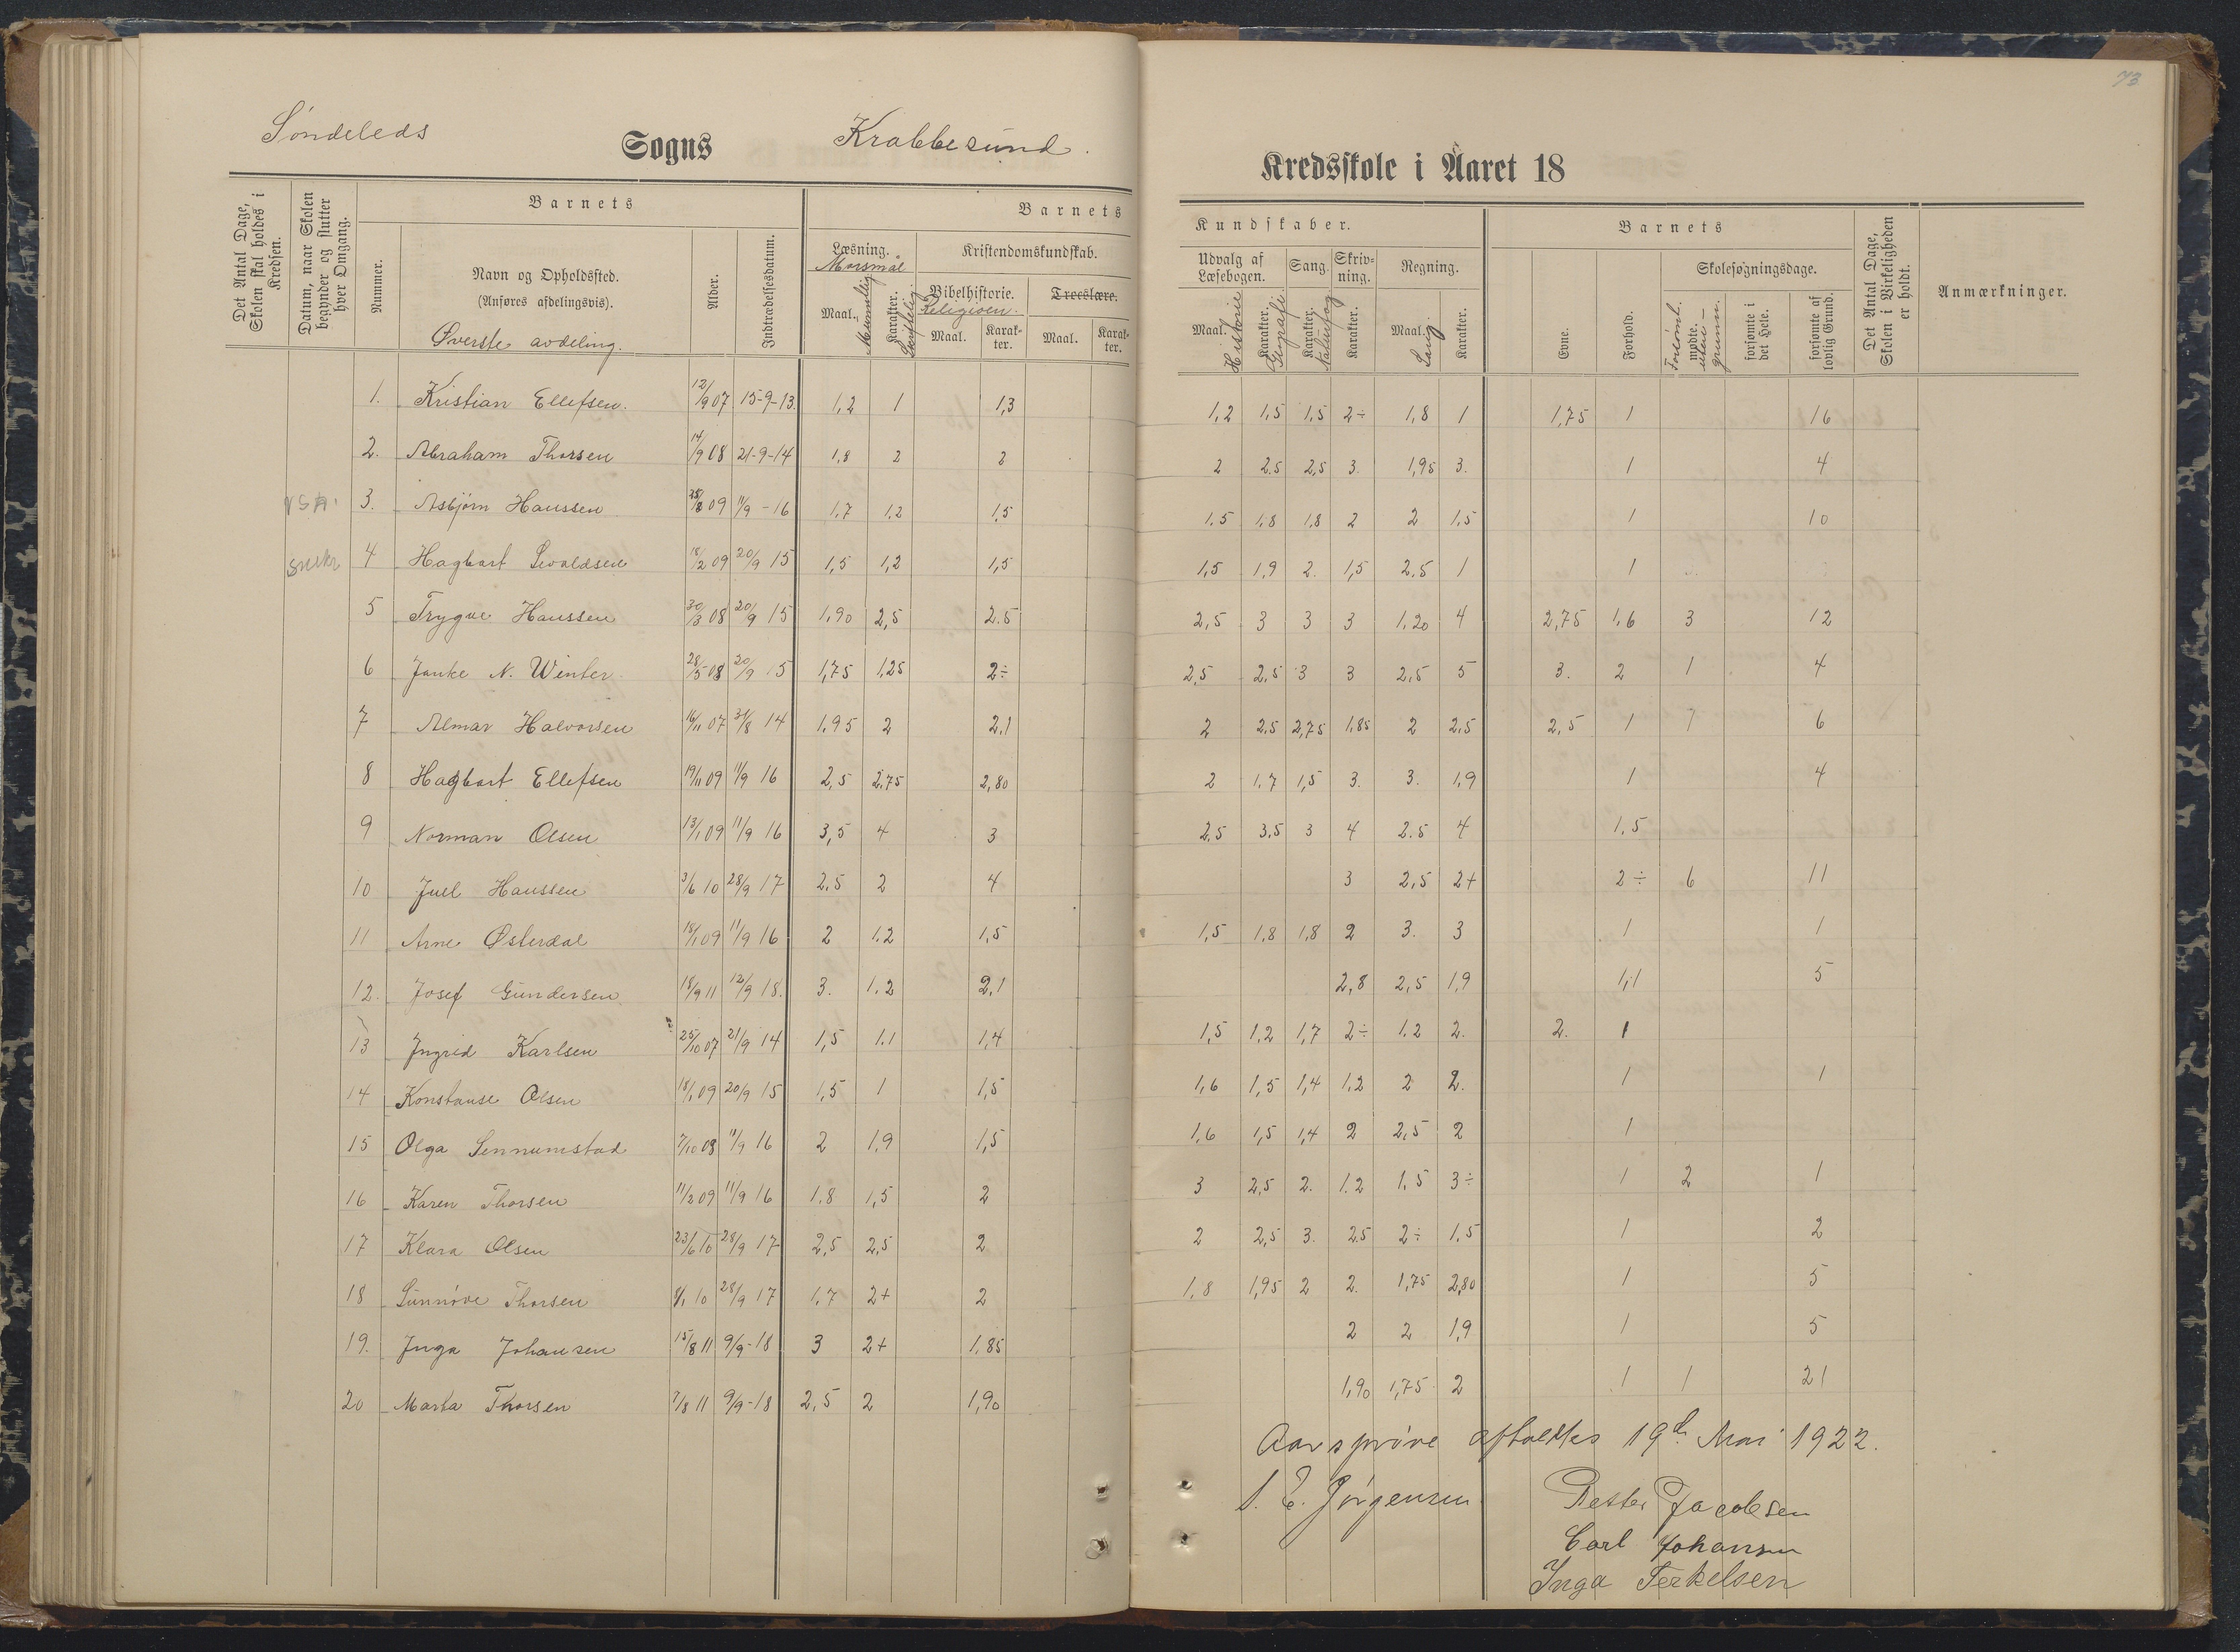 73
Søndeleds Sogns Krabbesund. Kredsskole i Aaret 18
Det Antal Dage, Skolen skal holdes i Kredsen.
Datum, naar Skolen begynder og slutter hver Omgang.
Barnets
Nummer.
Navn og Opholdssted.
(Anføres afdelingsvis).
Øverste avdeling.
Alder.
Indtrædelsesdatum.
Barnets Kundskaber.
Læsning.
Morsmål
Maal. Karakter.
Mundtlig Skriftlig
Kristendomskundskab.
Bibelhistorie. Troeslære.
Religion.
Maal. Karakter. Maal. Karakter.
Udvalg af Læsebogen. Sang. Skrivning. Regning.
Maal. Karakter. Karakter. Karakter. Maal. Karakter.
Historie Geografi Naturfag Sang
Barnets
Evne. Forhold.
Skolesøgningsdage.
mødte. forsømte i det Hele. forsømte af lovlig Grund.
Forsømt. uten grunn.
Det Antal Dage, Skolen i Virkeligheden er holdt.
Anmærkninger.
1. Kristian Ellefsen. 12/9 07 15-9-13. 1,2 1 1,3 1,2 1,5 1,5 2÷ 1,8 1 1,75 1 16
2. Abraham Thorsen 14/9 08 21-9-14 1,8 2 2 2 2.5 2,5 3. 1,95 3. 1 4
USA. 3. Asbjørn Hanssen 09 11/9 - 16 1.7 1.2 1,5 1.5 1,8 1,8 2 2 1,5 1 10
4 Hagbart Sevaldsen 18/2 09 20/9 15 1,5 1,2 1,5 1,5 1,9 2. 1,5 2.5 1 1
5 Trygve Hanssen 30/3 08 20/9 15 1,90 2,5 2.5 2,5 3 3 3 1.20 4 2,75 1,6 3 12
6 Janke N. Winter 28/5 08 20/9 15 1,75 1,25 2÷ 2,5 2,5 3 3 2,5 5 3. 2 1 4
7 Almar Halvorsen 16/11 07 31/8 14 1.95 2 2.1 2 2.5 2,75 1,85 2 2,5 2,5 1 7 6
8 Hagbart Ellefsen 19/11 09 11/9 16 2,5 2.75 2,80 2 1.7 1,5 3. 3. 1,9 1 4
9 Norman Olsen 13/1 09 11/9 16 3,5 4 3 2,5 3.5 3 4 2.5 4 1,5
10 Juel Hanssen 3/6 10 28/9 17 2.5 2 4 3 2,5 2+ 2÷ 6 11
11 Arne Østerdal 18/1 09 11/9 16 2 1.2 1,5 1,5 1,8 1,8 2 3. 3 1 1
12. Josef Gundersen 18/9 11 12/9 18. 3. 1.2 2,1 2,8 2,5 1,9 1,1 5
13 Ingrid Karlsen 25/10 07 21/9 14 1,5 1.1 1,4 1,5 1,2 1,7 2÷ 1.2 2. 2. 1
14 Konstanse Olsen 18/1 09 20/9 15 1,5 1 1,5 1,6 1,5 1,4 1,2 2 2. 1 1
15 Olga Sennumstad 7/10 08 11/9 16 2 1,9 1,5 1,6 1,5 1,4 2 2,5 2 1
16 Karen Thorsen 11/2 09 11/9 16 1.8 1,5 2 3 2,5 2. 1.2 1,5 3÷ 1 2 1
17 Klara Olsen 23/6 10 28/9 17 2,5 2,5 2 2 2,5 3. 2.5 2÷ 1.5 1 2
18 Sunnøve Thorsen 8/1 10 28/9 17 1.7 2+ 2 1.8 1,95 2 2. 1,75 2,80 1 5
19. Inga Johansen 15/8 11 9/9-18 3 2+ 1,85 2 2 1,9 1 5
20 Marta Thorsen 7/8 11 9/9-18 2,5 2 1,90 1,90 1,75 2 1 1 21
Aarsprøve afholdtes 19d. Mai 1922.
S. E. Jørgensen Peder Jacobsen
Carl Johansen
Inga Terkelsen